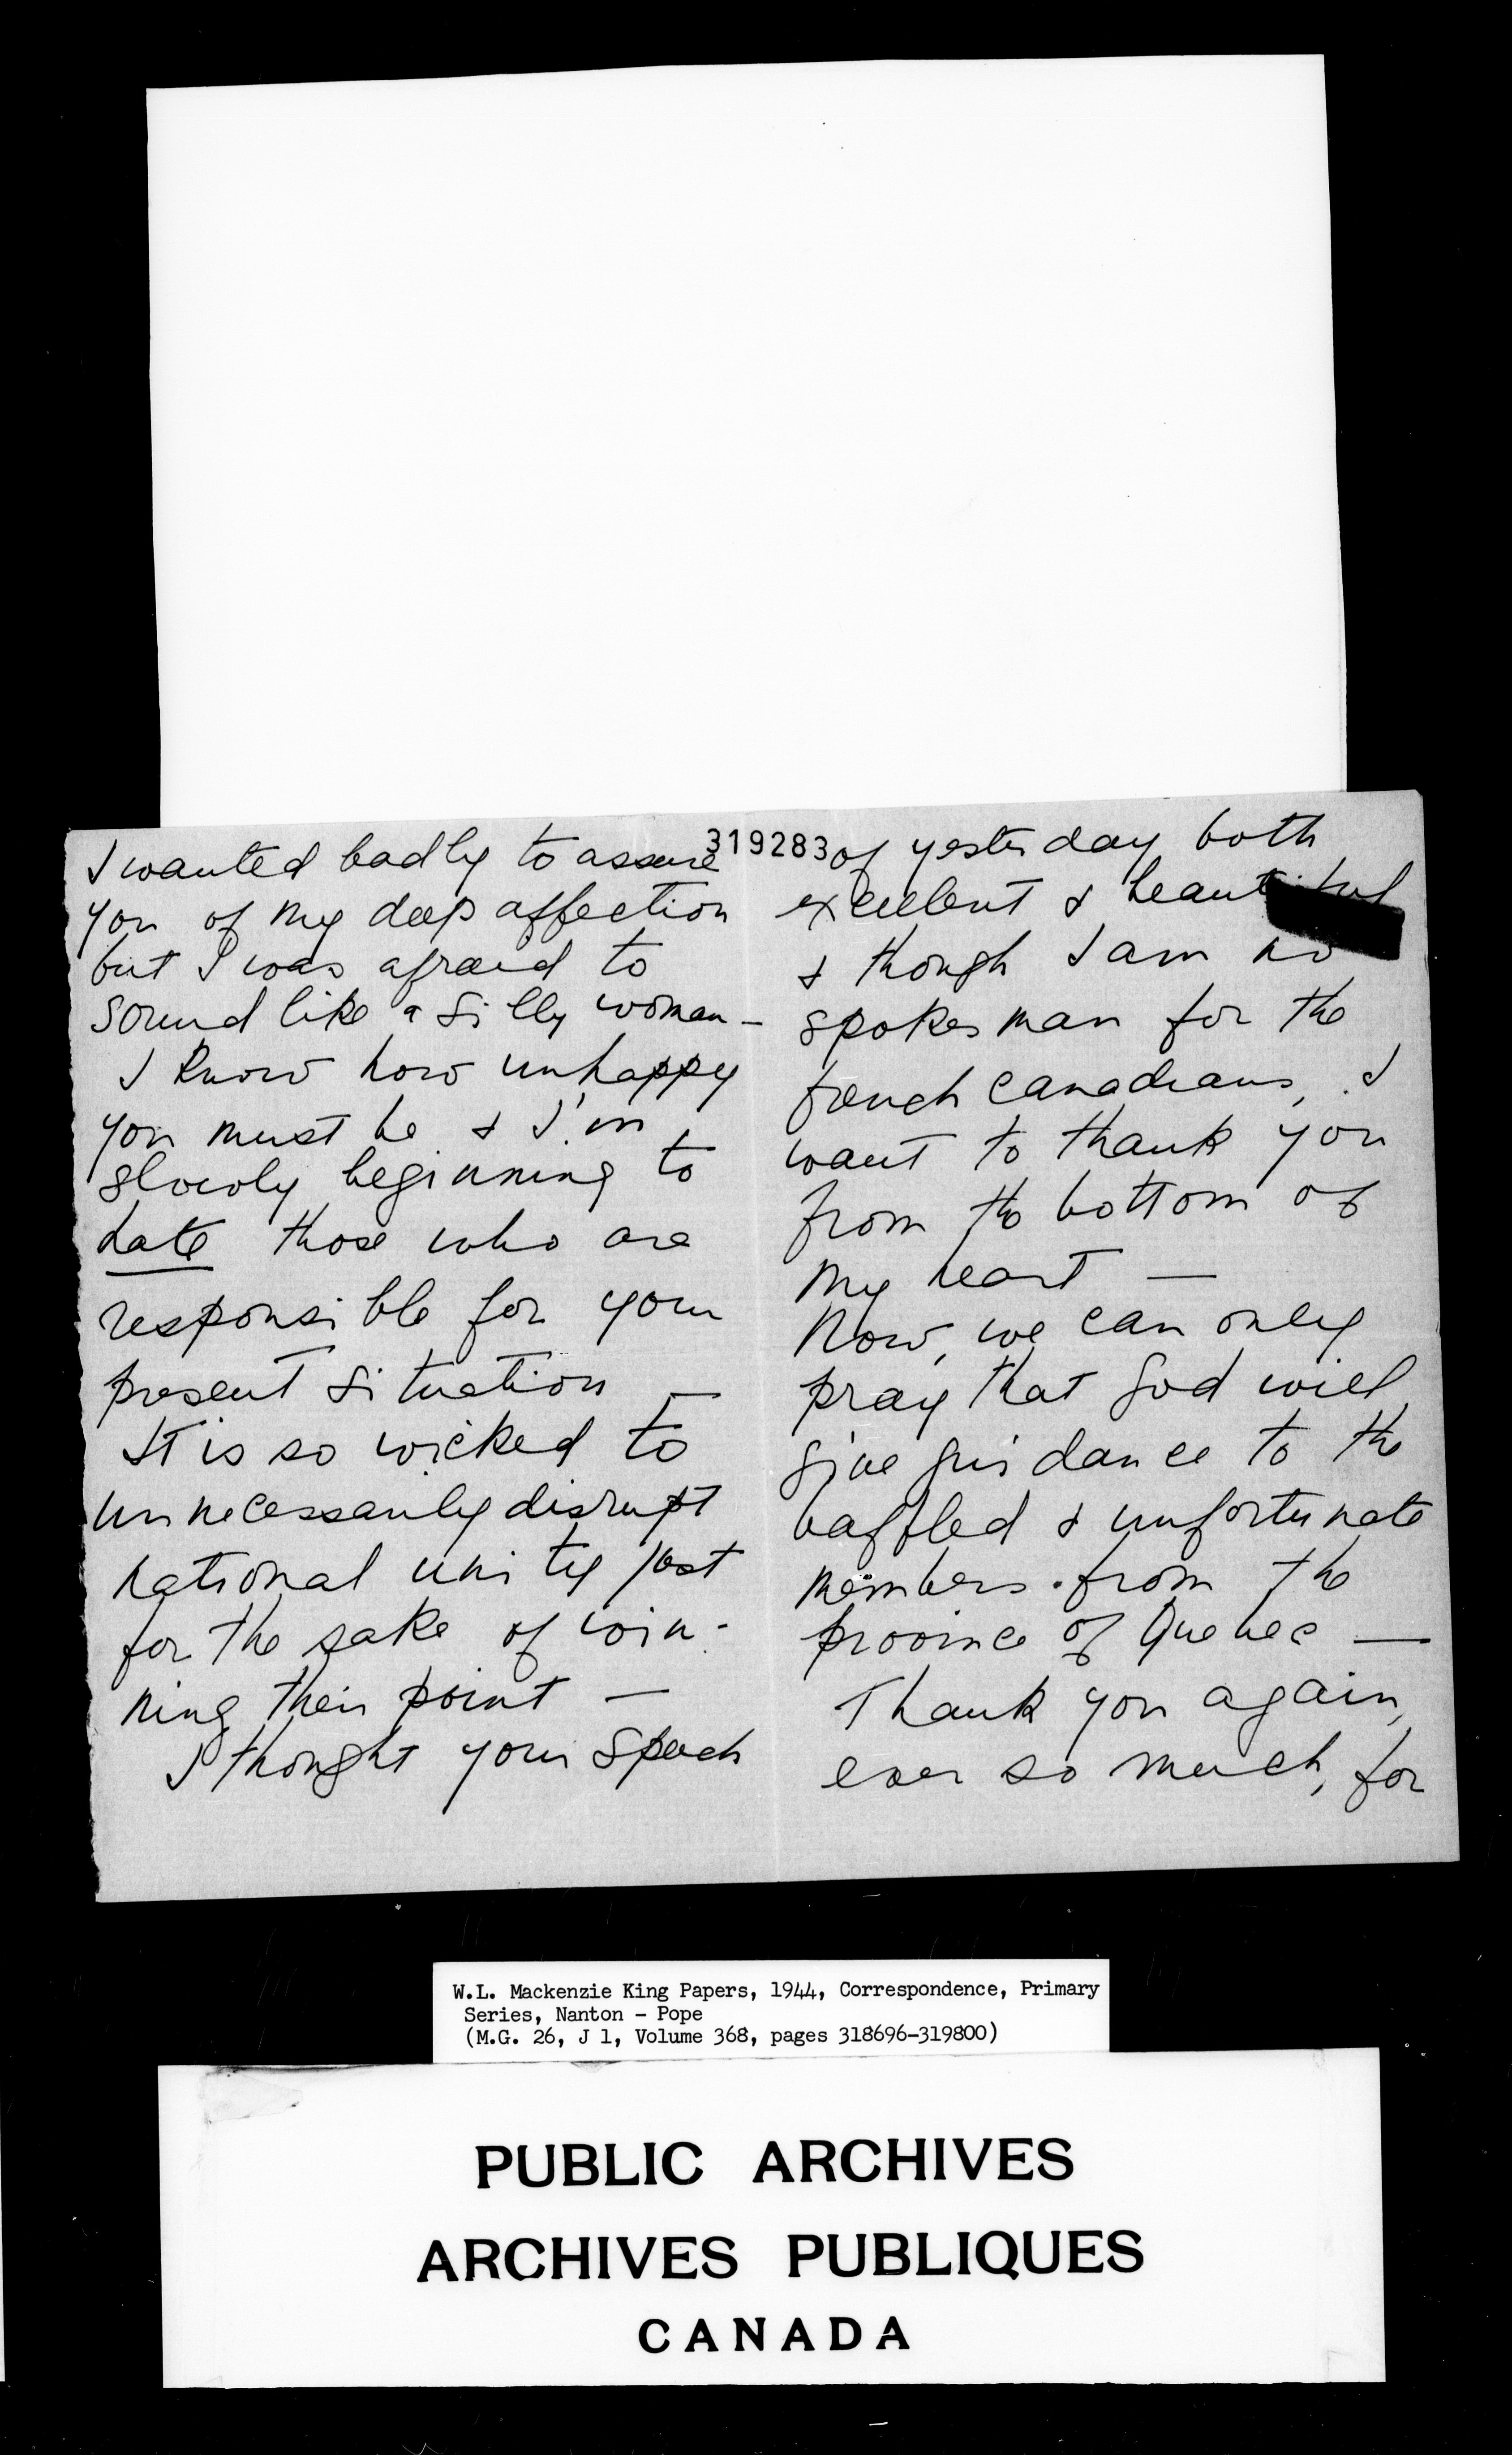 319283
I wanted badly to assure
you of my deep affection
but I was afraid to
sound like a silly woman –
I know how unhappy
you must be & I'm
slowly beginning to
hate those who are
responsible for your
present situation —
It is so wicked to
unnecessarily disrupt
national unity just
for the sake of win-
ning their point —
I thought your speech
of yesterday both
excellent & beautiful
& though I am no
spokesman for the
french canadians, I
want to thank you
from the bottom of
my heart —
Now, we can only
pray that God will
give guidance to the
baffled & unfortunate
members from the
province of Quebec —
Thank you again,
ever so much, for
W.L. Mackenzie King Papers, 1944, Correspondence, Primary
Series, Nanton - Pope
(M.G. 26, J 1, Volume 368, pages 318696-319800)
PUBLIC ARCHIVES
ARCHIVES PUBLIQUES
CANADA